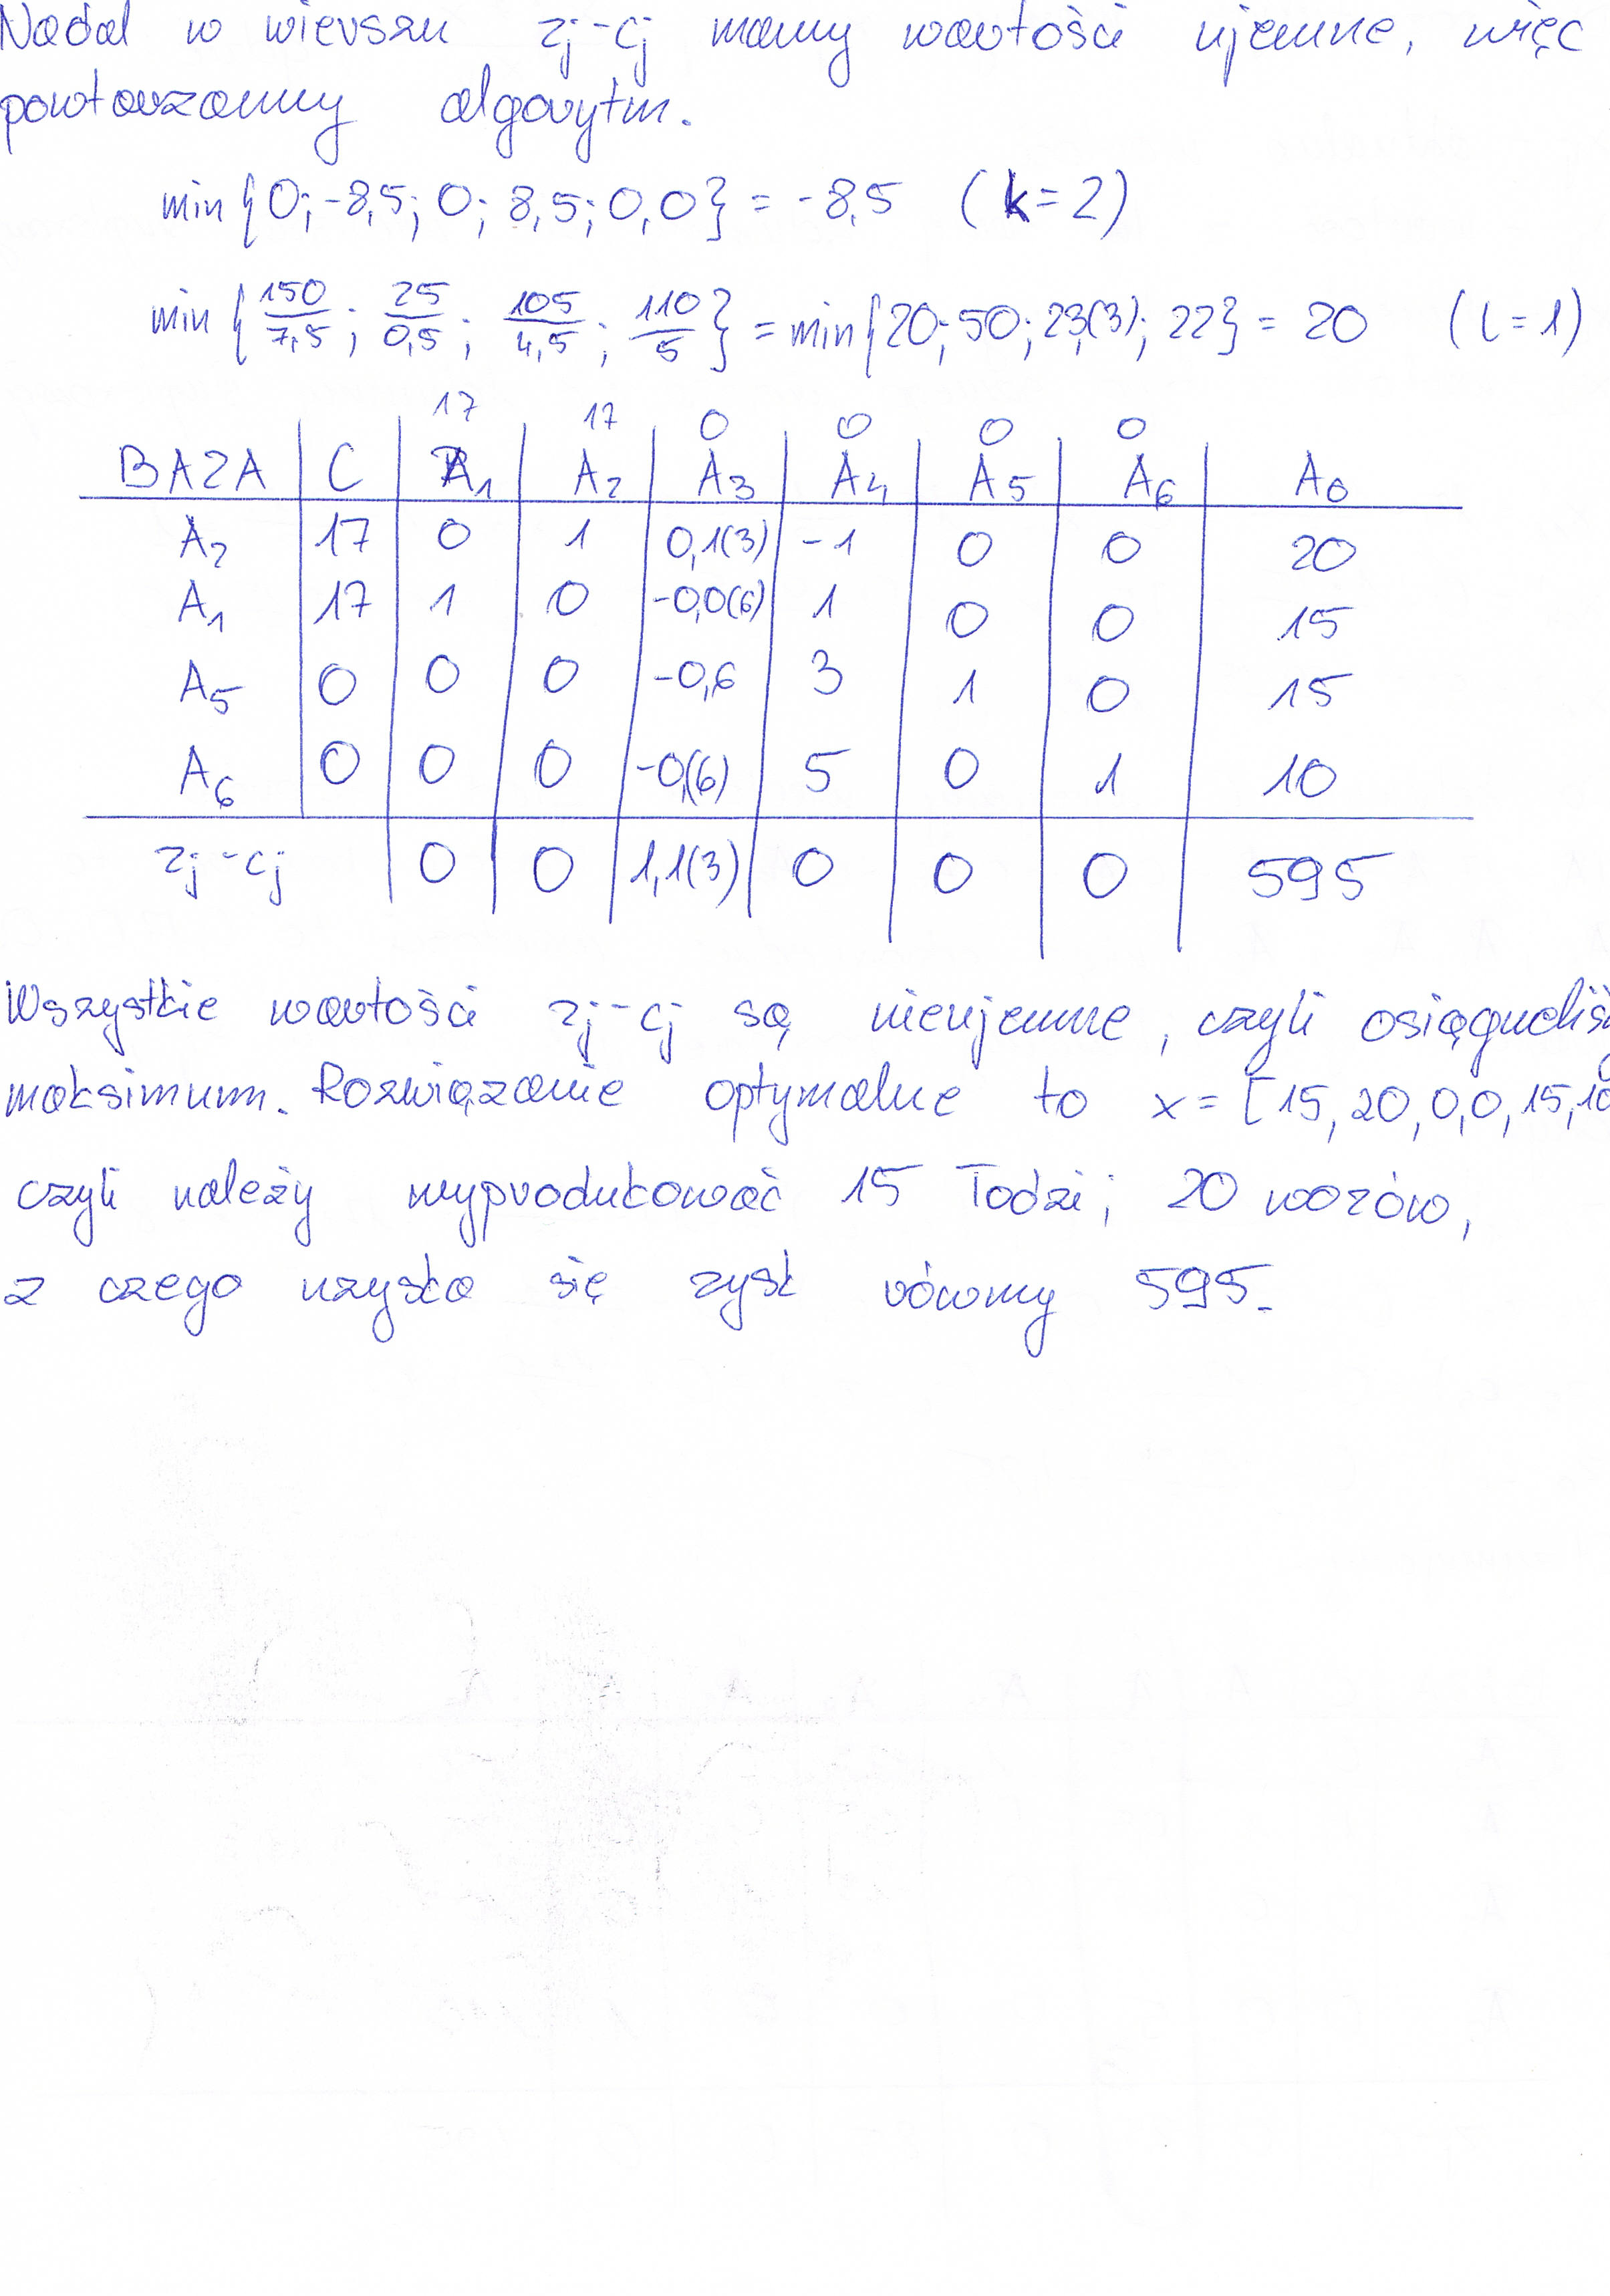 Nadal w wierszu zj-cj mamy wartości ujemne, więc
powtarzamy algorytm.
min{0; -8,5; 0; 8,5; 0,0} = -8,5 (k=2)
min{150/7,5; 25/0,5; 105/4,5; 110/5} = min{20; 50; 23,(3); 22} = 20 (l=1)
17 17 0 0 0 0
BAZA C A1 A2 A3 A4 A5 A6 A0
A2 17 0 1 0,1(3) -1 0 0 20
A1 17 1 0 -0,0(6) 1 0 0 15
A5 0 0 0 -0,6 3 1 0 15
A6 0 0 0 -0,(6) 5 0 1 10
zj-cj 0 0 1,1(3) 0 0 0 595
Wszystkie wartości zj-cj są nieujemne, czyli osiągnęliś
maksimum. Rozwiązanie optymalne to x = [15, 20, 0, 0, 15, 10
czyli należy wyprodukować 15 łodzi; 20 wozów,
z czego uzyska się zysk równy 595.